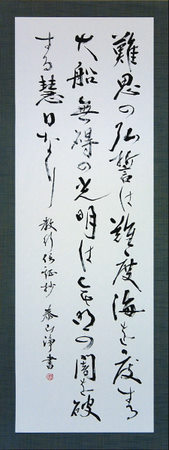 難思の弘誓は難度海を度する
大船無碍の光明は無明の闇を破
する慧日なり
教行信証抄 泰山浄書